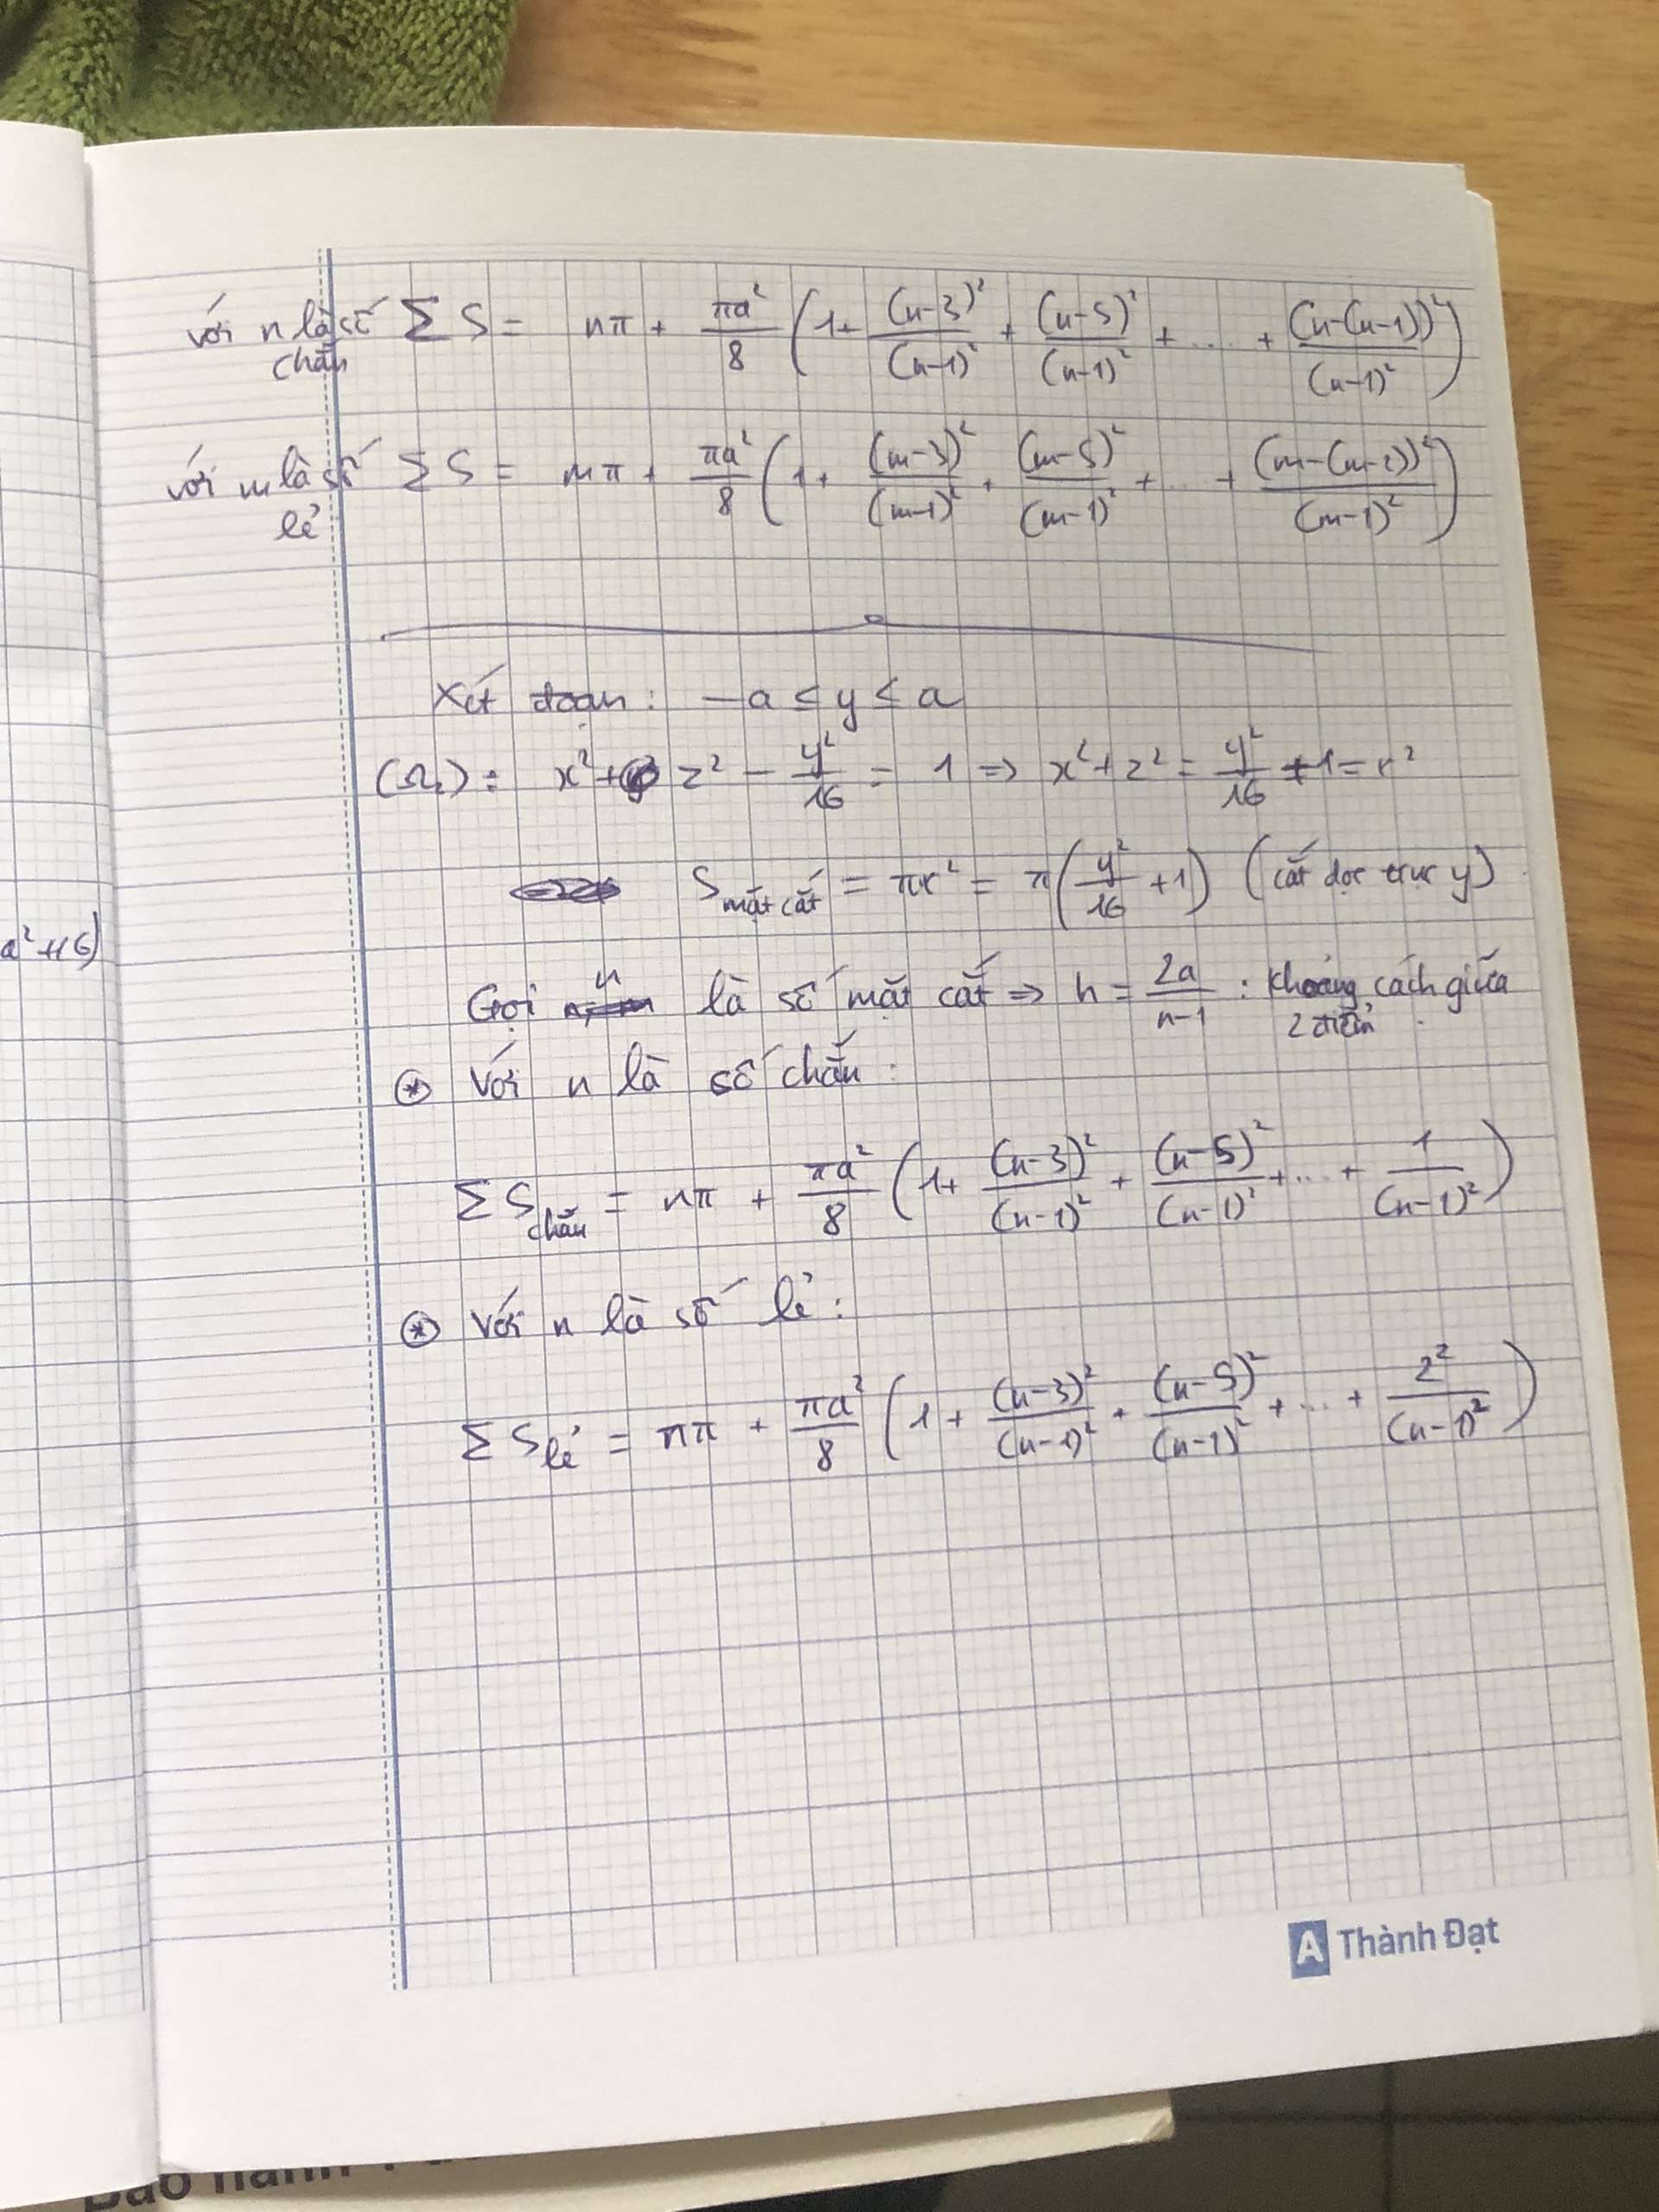 với n là số chẵn ∑ S = nπ + πa²/8 (1 + (n-3)²/(n-1)² + (n-5)²/(n-1)² + ... + (n-(n-1))²/(n-1)²)
với m là số lẻ ∑ S = mπ + πa²/8 (1 + (m-3)²/(m-1)² + (m-5)²/(m-1)² + ... + (m-(m-2))²/(m-1)²)
Xét đoạn: -a ≤ y ≤ a
x² + z² - y²/16 = 1 => x² + z² = y²/16 + 1 = r²
S mặt cắt = πr² = π(y²/16 + 1) (cắt dọc trục y)
a² + 16)
Gọi n là số mặt cắt => h = 2a/n-1 : khoảng cách giữa 2 điểm
⊛ Với n là số chẵn:
∑ S chẵn = nπ + πa²/8 (1 + (n-3)²/(n-1)² + (n-5)²/(n-1)² + ... + 1/(n-1)²)
⊛ Với n là số lẻ:
∑ S lẻ = nπ + πa²/8 (1 + (n-3)²/(n-1)² + (n-5)²/(n-1)² + ... + 2²/(n-1)²)
A Thành Đạt